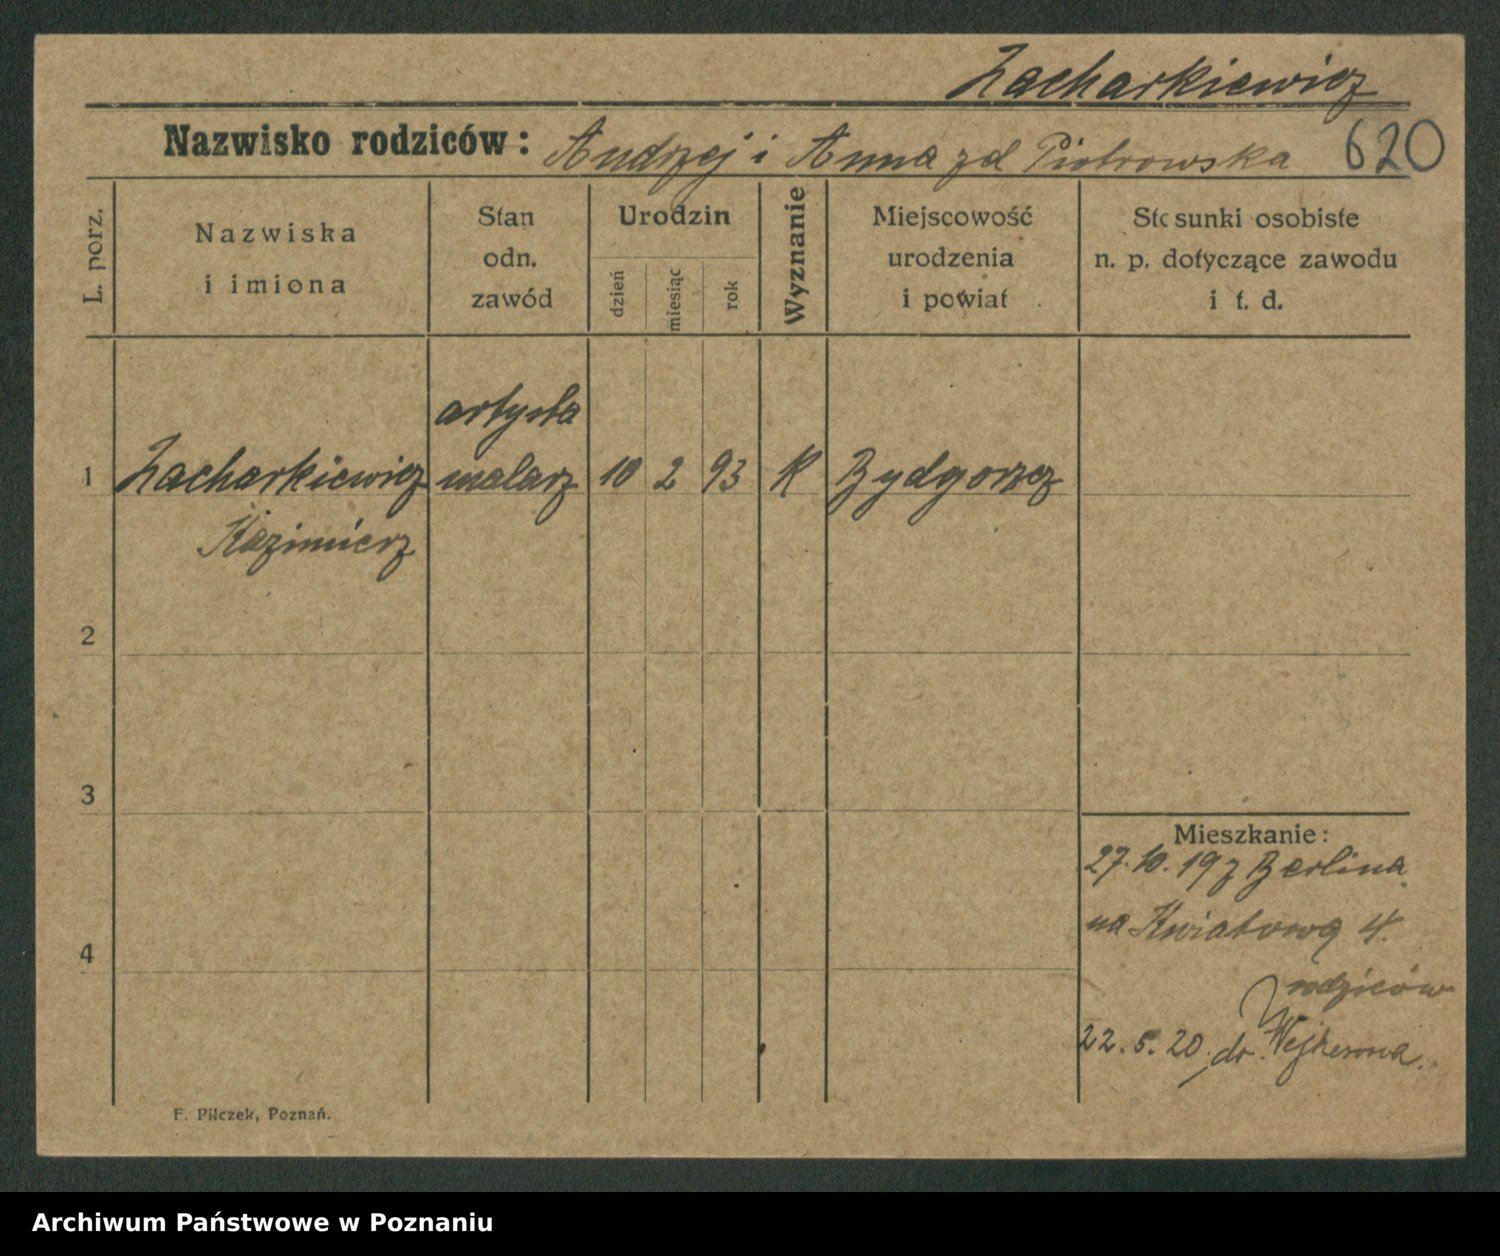 Zacharkiewicz
Nazwisko rodziców: Andrzej i Anna zd Piotrowska 620
L. porz.
Nazwiska
i imiona
Stan
odn.
zawód
Urodzin
dzień
miesiąc
rok
Wyznanie
Miejscowość
urodzenia
i powiat
Stosunki osobiste
n. p. dotyczące zawodu
i t. d.
artysta
1 Zacharkiewicz malarz 10 2 93 K Bydgoszcz
Kazimierz
2
3
Mieszkanie:
27.10.19 z Berlina
na Kwiatową 4.
4
rodziców
22.5.20. do Wejherowa.
F. Pilczek, Poznań.
Archiwum Państwowe w Poznaniu